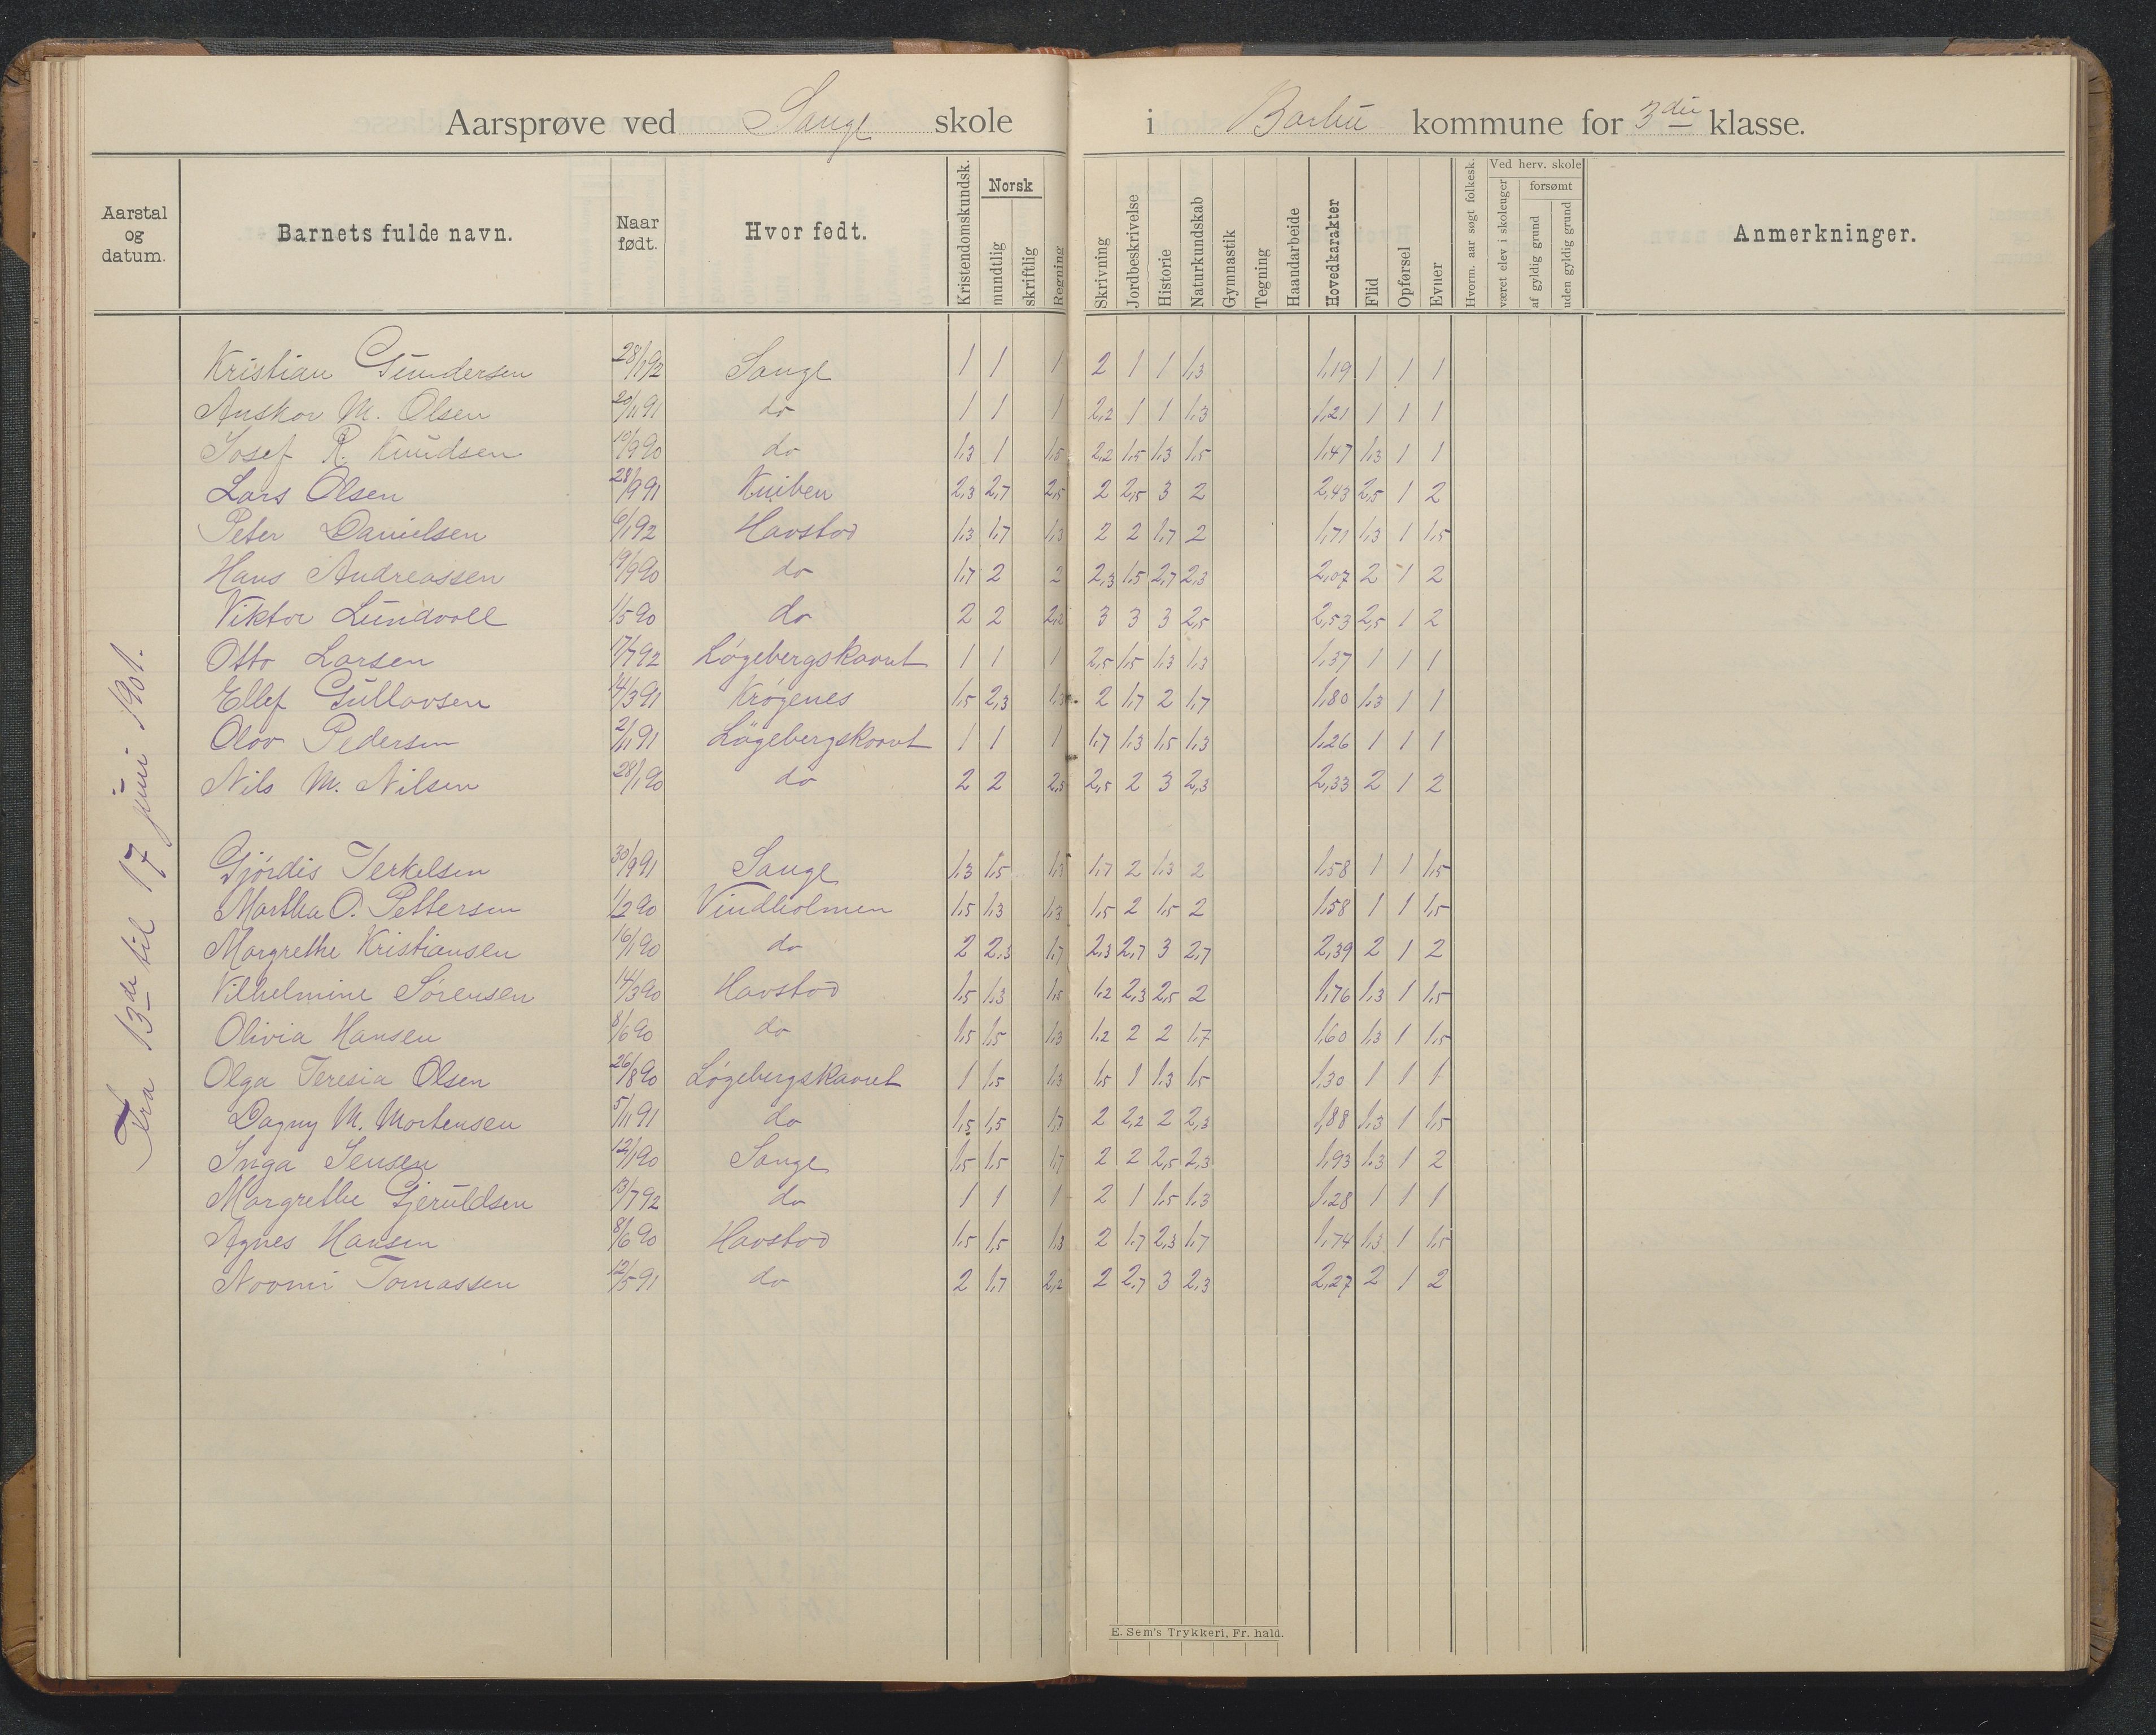 Aarsprøve ved Songe skole i Barbu kommune for 3die klasse.
Aarstal og datum. Barnets fulde navn. Naar født. Hvor født. Kristendomskundsk. Norsk mundtlig skriftlig Regning Skrivning Jordbeskrivelse Historie Naturkundskab Gymnastik Tegning Haandarbeide Hovedkarakter Flid Opførsel Evner Hvorm. aar søgt folkesk. Ved herv. skole været elev i skoleuger forsømt af gyldig grund uden gyldig grund Anmerkninger.
Fra 13de til 17 juni 1901.
Kristian Gundersen 28/1 92 Songe 1 1 1 2 1 1 1,3 1,19 1 1 1
Anskar M. Olsen 20/11 91 do 1 1 1 2,2 1 1 1,3 1,21 1 1 1
Josef R. Knudsen 10/9 90 do 1,3 1 1,5 2,2 1,5 1,3 1,5 1,47 1,3 1 1
Lars Olsen 28/9 91 Kniben 2,3 2,7 2,5 2 2,5 3 2 2,43 2,5 1 2
Peter Danielsen 6/1 92 Havstad 1,3 1,7 1,3 2 2 1,7 2 1,71 1,3 1 1,5
Hans Andreassen 19/9 90 do 1,7 2 2 2,3 1,5 2,7 2,3 2,07 2 1 2
Viktor Lundvall 1/5 90 do 2 2 2,2 3 3 3 2,5 2,53 2,5 1 2
Otto Larsen 17/7 92 Løgebergskaant 1 1 1 2,5 1,5 1,3 1,3 1,37 1 1 1
Ellef Gullovsen 14/3 91 Krøgenes 1,5 2,3 1,3 2 1,7 2 1,7 1,80 1,3 1 1
Olav Pedersen 2/11 91 Løgebergskaant 1 1 1 1,7 1,3 1,5 1,3 1,26 1 1 1
Nils M. Nilsen 28/1 90 do 2 2 2,5 2,5 2 3 2,3 2,33 2 1 2
Gjørdis Terkelsen 30/9 91 Songe 1,3 1,5 1,3 1,7 2 1,3 2 1,58 1 1 1,5
Martha O. Pettersen 1/2 90 Vindholmen 1,5 1,3 1,3 1,5 2 1,5 2 1,58 1 1 1,5
Margrethe Kristiansen 16/1 90 do 2 2,3 1,7 2,3 2,7 3 2,7 2,39 2 1 2
Vilhelmine Sørensen 14/3 90 Havstad 1,5 1,3 1,5 1,2 2,3 2,5 2 1,76 1,3 1 1,5
Olivia Hansen 8/6 90 do 1,5 1,5 1,3 1,2 2 2 1,7 1,60 1,3 1 1,5
Olga Teresia Olsen 26/8 90 Løgebergskaant 1 1,5 1,3 1,5 1 1,3 1,5 1,30 1 1 1
Dagny M. Mortensen 5/11 91 do 1,5 1,5 1,7 2 2,2 2 2,3 1,88 1,3 1 1,5
Inga Jensen 12/1 90 Songe 1,5 1,5 1,7 2 2 2,5 2,3 1,93 1,3 1 2
Margrethe Gjeruldsen 13/7 92 do 1 1 1 2 1 1,5 1,3 1,28 1 1 1
Agnes Hansen 8/6 90 Havstad 1,5 1,5 1,3 2 1,7 2,3 1,7 1,74 1,3 1 1,5
Noomi Tomassen 12/5 91 do 2 1,7 2,2 2 2,7 3 2,3 2,27 2 1 2
E. Sem's Trykkeri, Fr. hald.